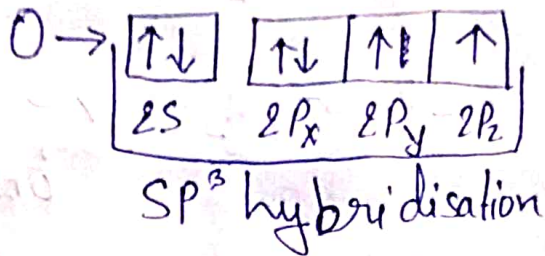 O → ↑↓ ↑↓ ↑ ↑
2S 2Px 2Py 2Pz
SP³ hybridisation